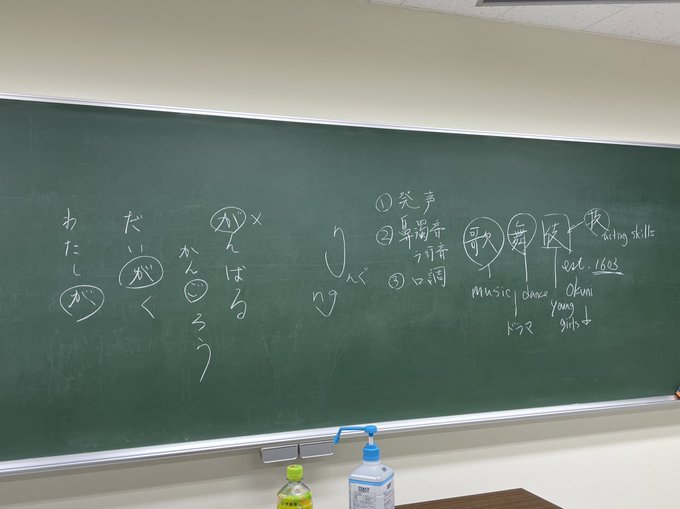 わたしが
だいがく
かんろう
がんばる
×
g
んぐ
ng
① 発声
② 鼻濁音
③ 口調
歌 舞 妓 技
acting skills
est. 1603
music dance Okuni
young
girls ↓
ドラマ